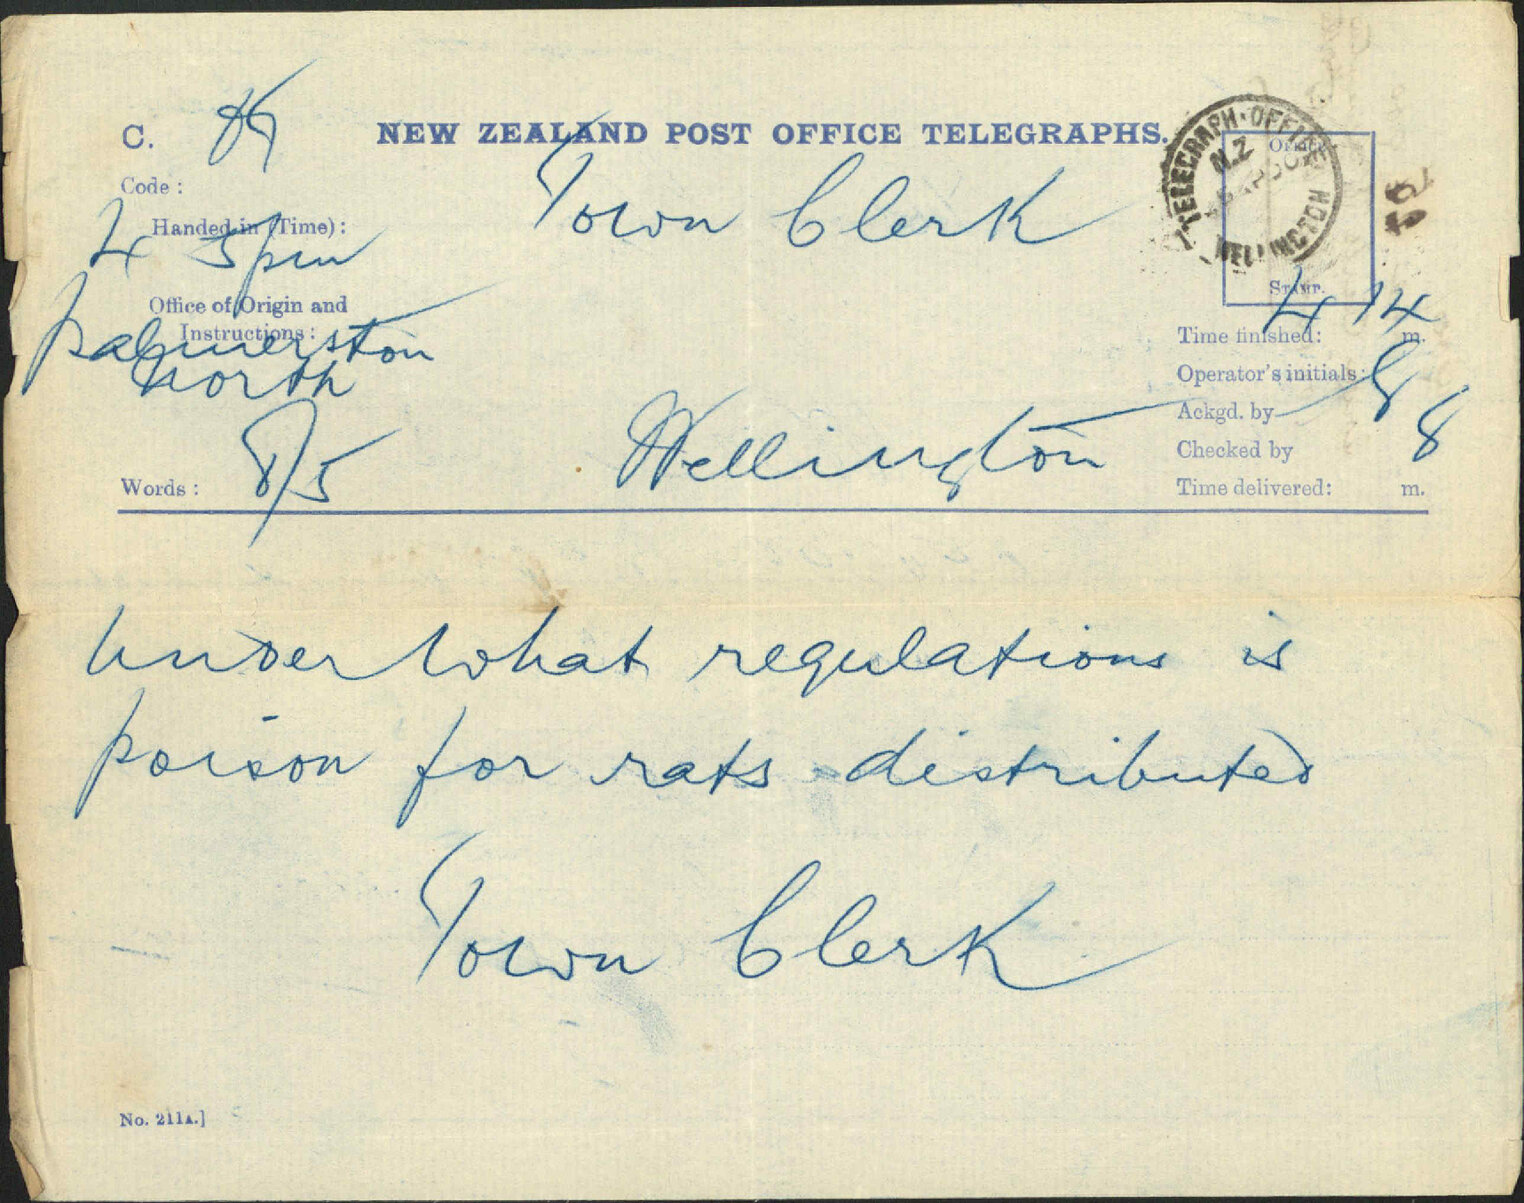 C.
NEW ZEALAND POST OFFICE TELEGRAPHS.
TELEGRAPH·OFFICE
N.Z
WELLINGTON
Office
Stamp.
Code :
Town Clerk
Handed in (Time) :
4 5pm
Office of Origin and
Instructions :
Palmerston
North
Time finished: 4 14 m.
Operator's initials:
Ackgd. by
Checked by
Time delivered: m.
Words : 8/5
Wellington
Under what regulations is
poison for rats distributed
Town Clerk
No. 211A.]